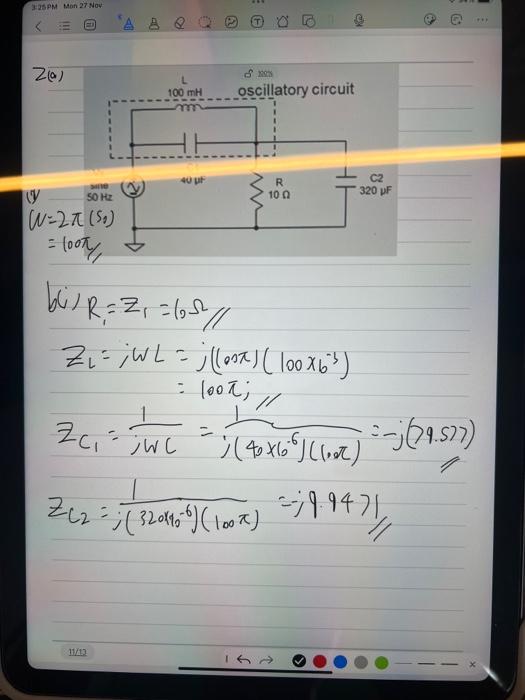 3:25 PM Mon 27 Nov
2(a)
L
100 mH
oscillatory circuit
100%
40 µF
sine
50 Hz
R
10 Ω
C2
320 µF
(i)
W=2π(50)
=100π//
b(i) R₁=Z₁=10Ω//
Z_L=jWL=j(100π)(100x10⁻³)
=100π;//
Z_C₁=1/jWC=1/j(40x10⁻⁶)(100π)=-j(79.577)//
Z_C2=1/j(320x10⁻⁶)(100π)=-j9.9471//
11/13